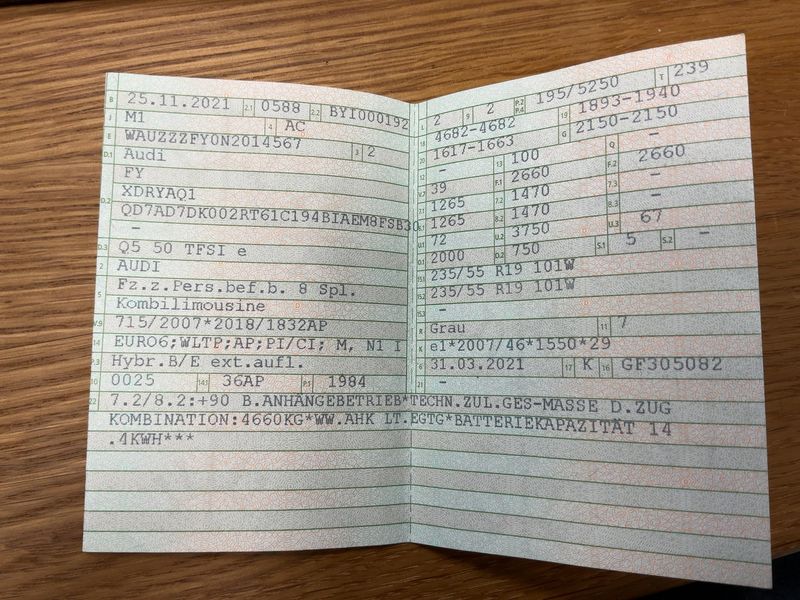 B 25.11.2021 2.1 0588 2.2 BYI000192
J M1 4 AC
E WAUZZZFY0N2014567 3 2
D.1 Audi
FY
D.2 XDRYAQ1
QD7AD7DK002RT61C194BIAEM8FSB30
–
D.3 Q5 50 TFSI e
2 AUDI
5 Fz.z.Pers.bef.b. 8 Spl.
Kombilimousine
V.9 715/2007*2018/1832AP
14 EURO6;WLTP;AP;PI/CI; M, N1 I
P.3 Hybr.B/E ext.aufl.
10 0025 14.1 36AP P.1 1984
22 7.2/8.2:+90 B.ANHÄNGEBETRIEB*TECHN.ZUL.GES-MASSE D.ZUG
KOMBINATION:4660KG*WW.AHK LT.EGTG*BATTERIEKAPAZITÄT 14
.4KWH***
L 2 9 2 P.2 P.4 195/5250 T 239
18 4682-4682 19 1893-1940
20 1617-1663 G 2150-2150
12 – 13 100 Q –
V.7 39 F.1 2660 F.2 2660
7.1 1265 7.2 1470 7.3 –
8.1 1265 8.2 1470 8.3 –
U.1 72 U.2 3750 U.3 67
O.1 2000 O.2 750 S.1 5 S.2 –
15.1 235/55 R19 101W
15.2 235/55 R19 101W
15.3 –
R Grau 11 7
K e1*2007/46*1550*29
6 31.03.2021 17 K 16 GF305082
21 –